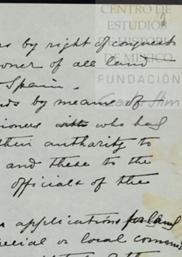 CENTRO DE
ESTUDIOS
HISTORIA
MEXICO
FUNDACIÓN
by right of conquest
owner of all land
Spain.
by means of
who had
their authority to
and these to the
officials of the
applications for land
special or local commis